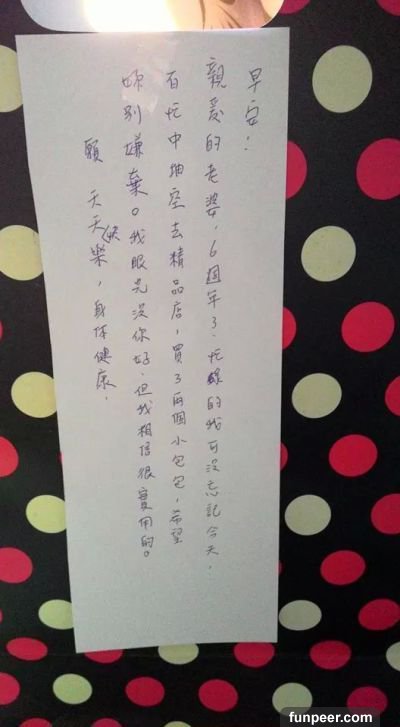 早安：
親爱的老婆，6週年了．忙碌的我可没忘記今天，
百忙中抽空去精品店，買了兩個小包包，希望
妳别嫌棄。我眼光没你好．但我相信很實用的。
願 天天快樂，身体健康．
funpeer.com